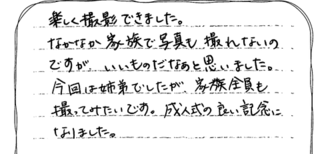 楽しく撮影できました。
なかなか家族で写真も撮れないの
ですが、いいものだなぁと思いました。
今回は姉弟でしたが、家族全員も
撮ってみたいです。成人式の良い記念に
なりました。